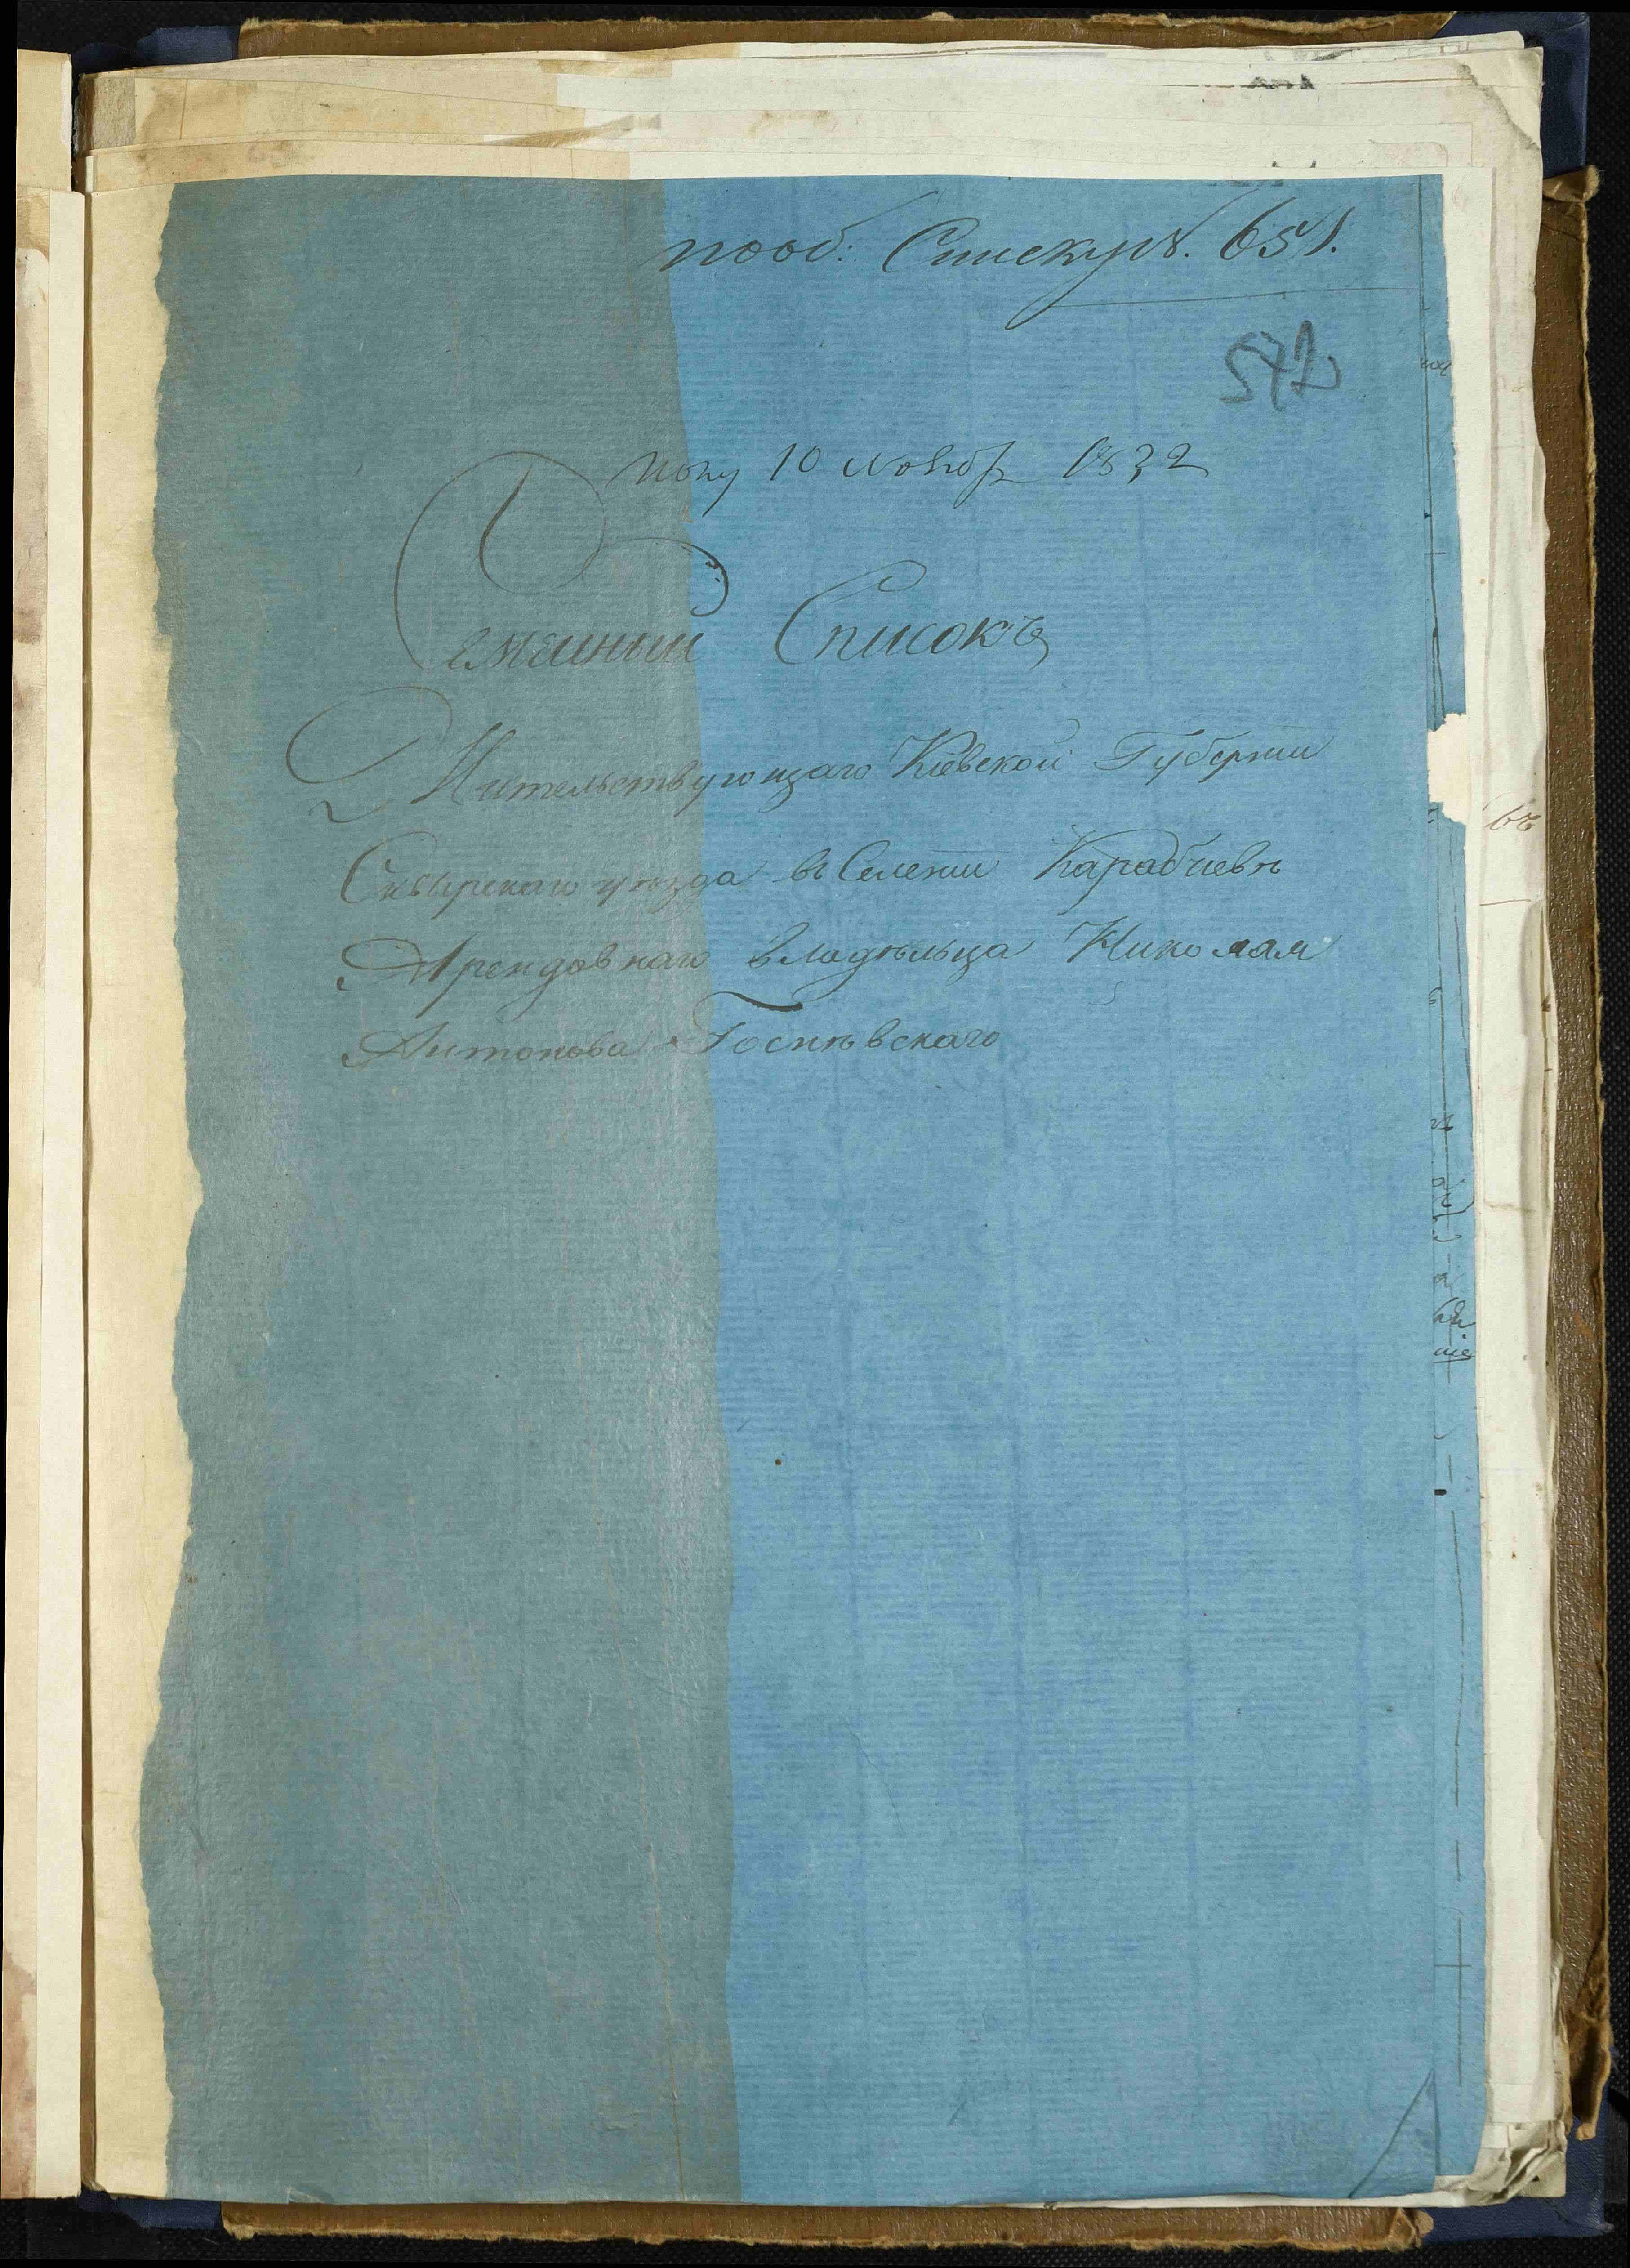 пооб: Списку №. 651.
572
10 Ноябр 1832
Семейный Списокъ
Жительствующаго Кіевской Губерніи
Сквирскаго уезда въ Селеніи Карабчиевѣ
Арендовнаго владѣльца Николая
Антонова Госнѣвскаго